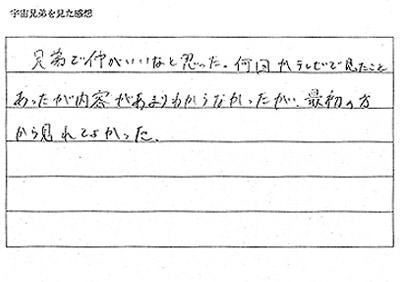 宇宙兄弟を見た感想
兄弟で仲がいいなと思った。何回かテレビで見たこと
あったが内容があまりわからなかったが、最初の方
から見れてよかった。